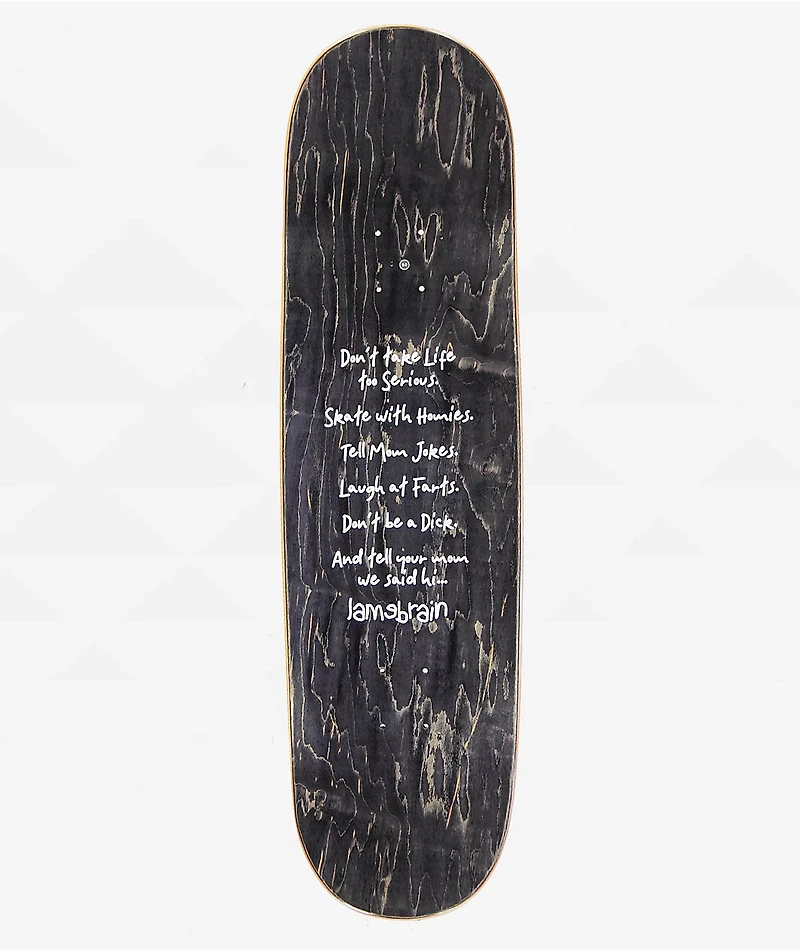 Don't take Life
too Serious.
Skate with Homies.
Tell Mom Jokes.
Laugh at Farts.
Don't be a Dick.
And tell your mom
we said hi...
lamebrain